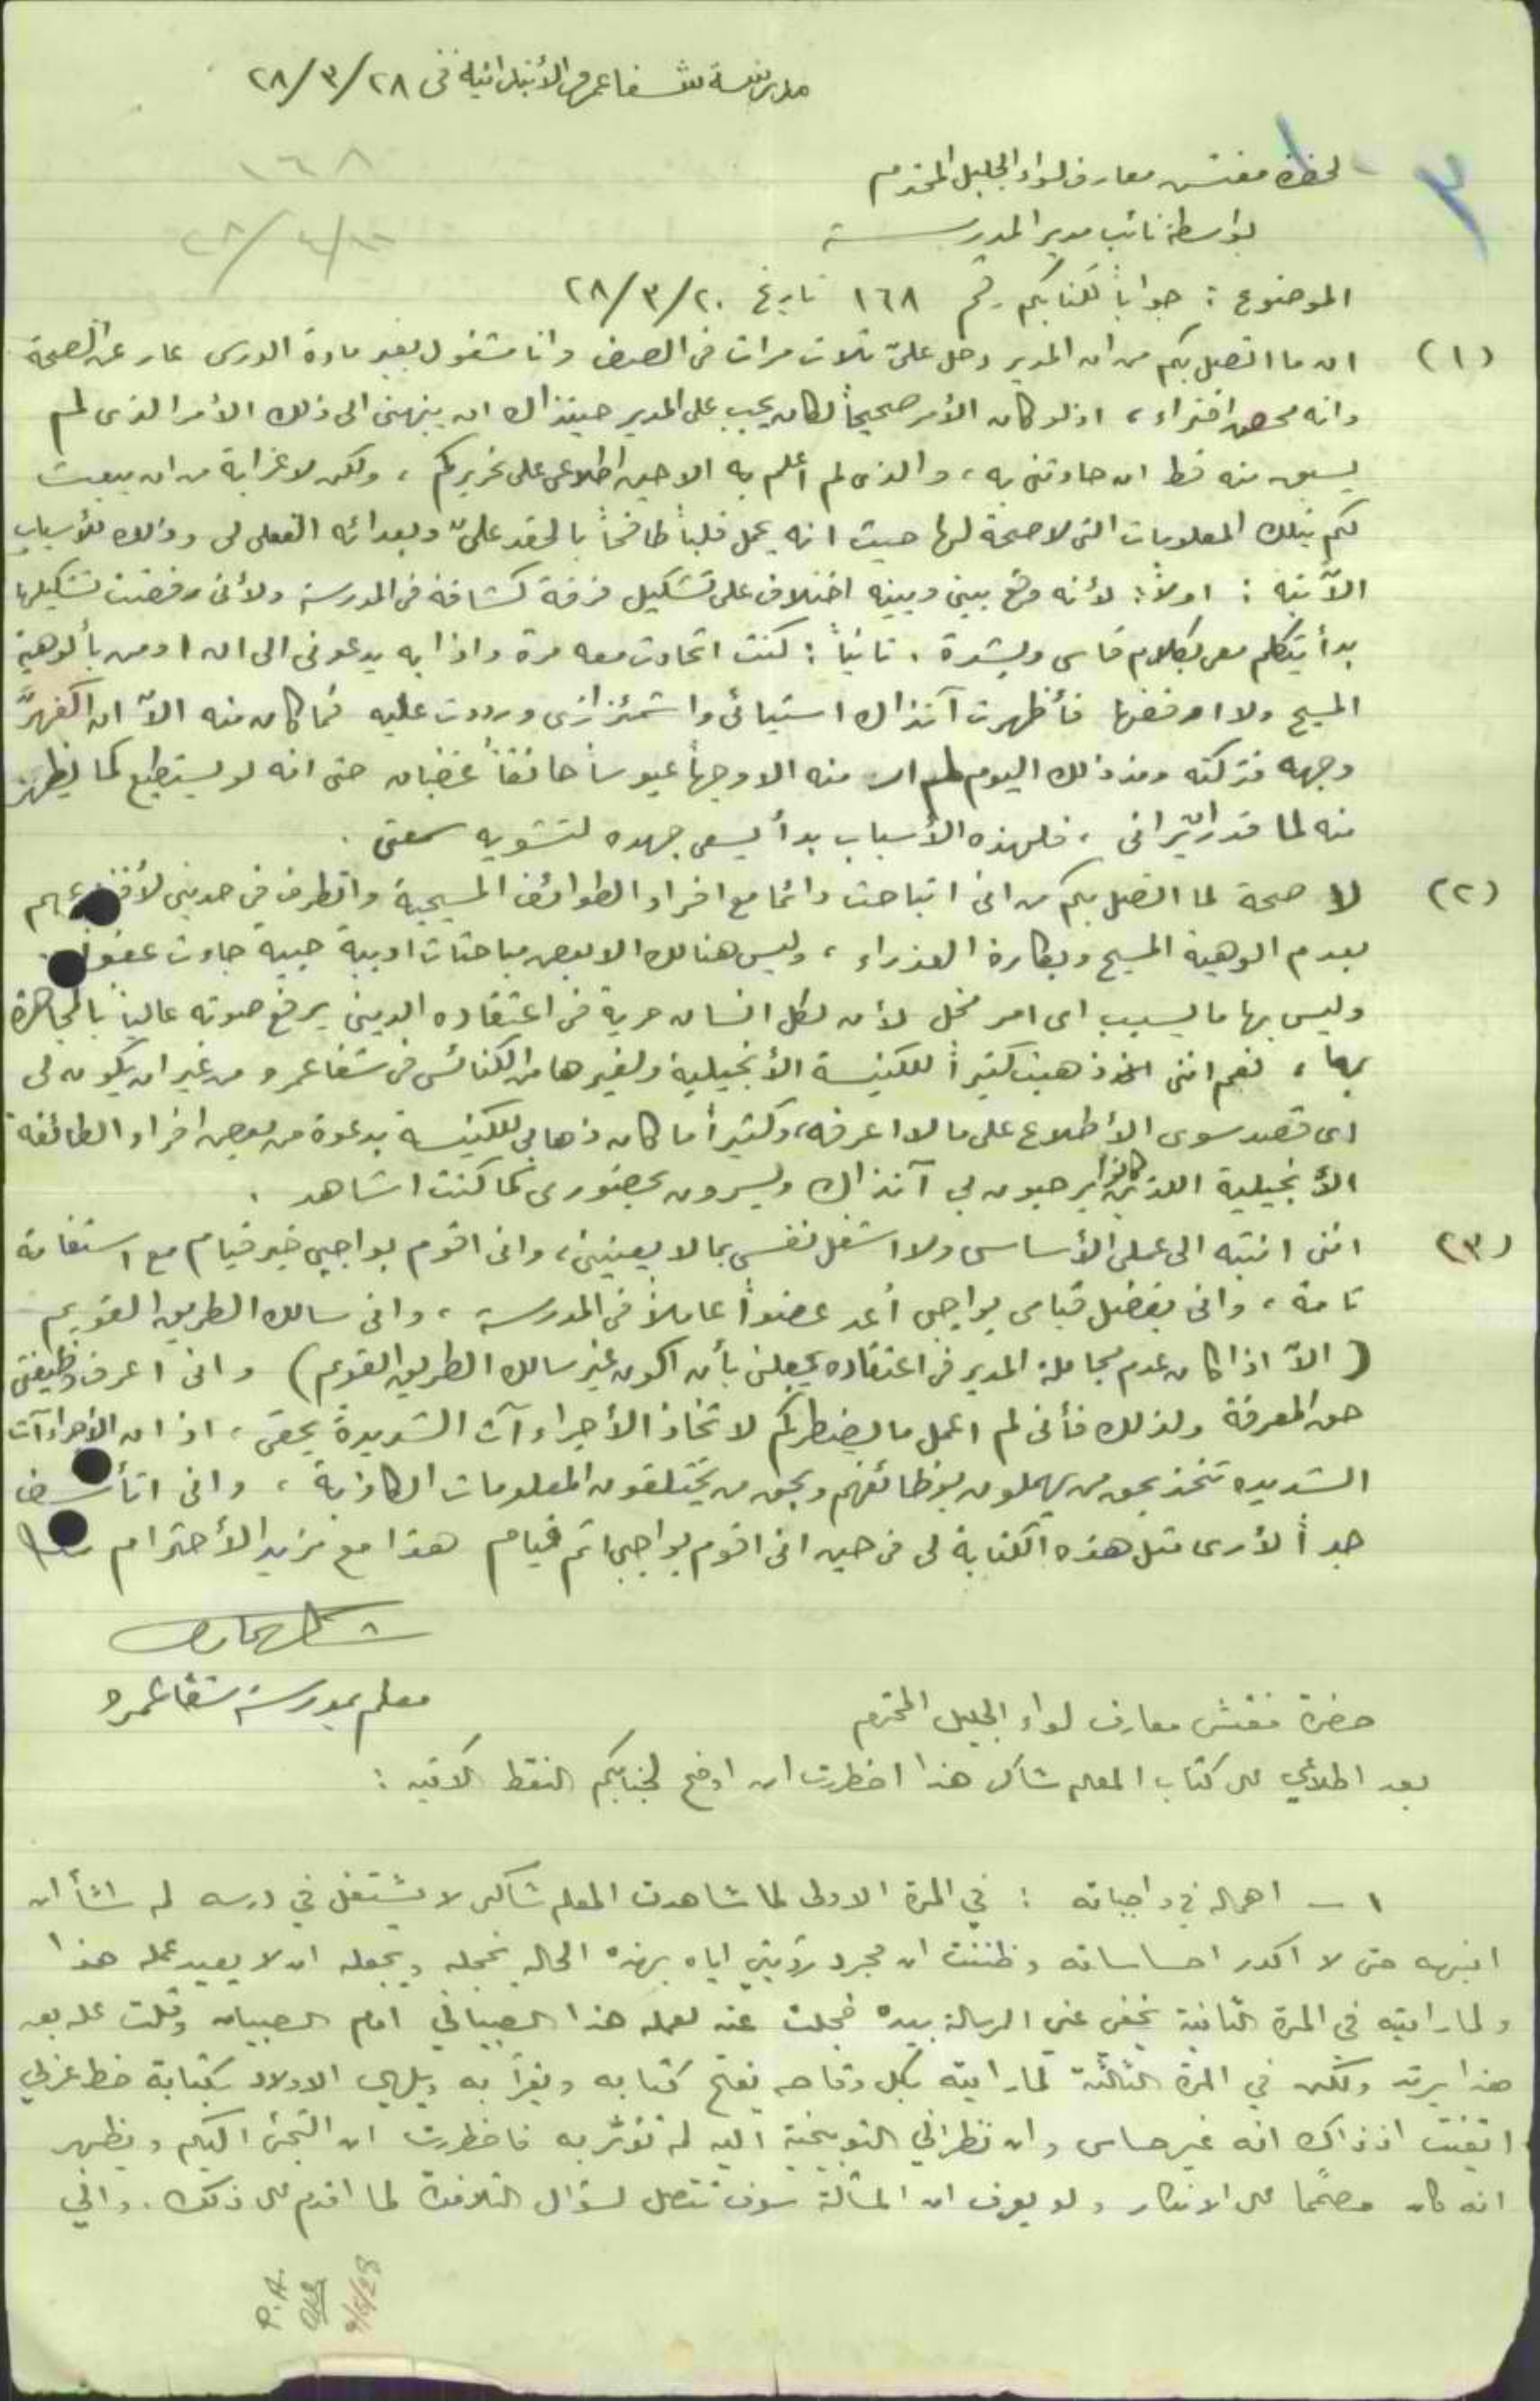 مدرسة شفاعمرو الأبتدائية في ٢٨/٣/٢٨
١٦٨
٣
لحضرة مفتش معارف لواء الجليل المحترم
بواسطة نائب مدير المدرسة
الموضوع : جواباً لكتابكم رقم ١٦٨ تاريخ ٢٨/٣/٢٠
(١) ان ما اتصل بكم من ان المدير دخل عليّ ثلاث مرات في الصف وانا مشغول بغير مادة الدرس عار عن الصحة
وانه محض افتراء ، اذ لو كان الأمر صحيحاً لكان يجب على المدير حينذاك ان ينبهني الى ذلك الأمر الذي لم
يسبق منه قط ان حادثني به ، والذي لم اعلم به الا حين اطلاعي على تحريركم ، ولكن لا غرابة من ان يبعث
لكم بتلك المعلومات التي لا صحة لها حيث انه يحمل قلباً طافحاً بالحقد عليّ وبعدائه الفعلي لي وذلك للأسباب
الآتية : اولاً : لأنه وقع بيني وبينه اختلاف على تشكيل فرقة كشافة في المدرسة ولأني رفضت تشكيلها
بدأ يتكلم معي بكلام قاسي وبشدة . ثانياً : كنت اتحادث معه مرة واذا به يدعوني الى ان اومن بألوهية
المسيح ولا ارفضها فأظهرت آنذاك استيائي واشمئزازي ورددت عليه فما كان منه الاّ ان اكفهرَّ
وجهه فتركته ومنذ ذلك اليوم لم ار منه الا وجهاً عبوساً حانقاً غضبان حتى انه لو يستطيع كما يظهر
منه لما قدر ان يراني ، فلهذه الأسباب بدأ يسعى جهده لتشويه سمعتي .
(٢) لا صحة لما اتصل بكم من اني اتباحث دائما مع افراد الطوائف المسيحية واتطرف في حديثي لأقنعهم
بعدم الوهية المسيح وبكارة العذراء ، وليس هنالك الا بعض مباحثات ادبية حبية جاءت عفواً
وليس بها ما يسبب اي امر مخل لأن لكل انسان حرية في اعتقاده الديني يرفع صوته عالياً بالمجاهرة
بها ، نعم انني ذهبت كثيراً للكنيسة الأنجيلية ولغيرها من الكنائس في شفاعمرو من غير ان يكون لي
اي قصد سوى الأطلاع على ما لا اعرفه ، وكثيراً ما كان ذهابي للكنيسة بدعوة من بعض افراد الطائفة
الأنجيلية اللذين كانوا يرحبون بي آنذاك ويسرون بحضوري كما كنت اشاهد .
(٣) انني انتبه الى عملي الأساسي ولا اشغل نفسي بما لا يعنيني ، واني اقوم بواجبي خير قيام مع استقامة
تامة ، واني بفضل قيامي بواجبي أعد عضواً عاملاً في المدرسة ، واني سالك الطريق القويم
( الاّ اذا كان عدم مجاملة المدير في اعتقاده يجعلني بأن اكون غير سالك الطريق القويم ) واني اعرف وظيفتي
حق المعرفة ولذلك فأني لم اعمل ما يضطركم لاتخاذ الأجراءآت الشديدة بحقي ، اذ ان الأجراءآت
الشديده تتخذ بحق من يهملون بوظائفهم وبحق من يختلقون المعلومات الكاذبة ، واني اتأسف
جداً لأرى مثل هذه الكتابة لي في حين اني اقوم بواجبي اتم قيام هذا مع مزيد الأحترام
معلم بمدرسة شفاعمرو
حضرة مفتش معارف لواء الجليل المحترم
بعد اطلاعي على كتاب المعلم شاكر هذا اضطررت ان اوضح لجنابكم النقط الآتيه :
١ ـ اهماله في واجباته : في المرة الاولى لما شاهدت المعلم شاكر لا يشتغل في درسه لم اشأ ان
انبهه حتى لا اكدر احساساته وظننت ان مجرد رؤيتي اياه بهذه الحاله يخجله ويجعله ان لا يعيد عمله هذا
ولما رايته في المرة الثانية يخفي عني الرسالة بيده خجلت عنه لعمله هذا الصبياني امام الصبيان وقلت عله بعد
هذا يرتد ولكن في المرة الثالثة لما رايته بكل وقاحه يفتح كتابه ويقرأ به ويلهي الاولاد بكتابة خط عربي
ايقنت اذ ذاك انه غير حساس وان نظراتي التوبيخية اليه لم تؤثر به فاضطررت ان التجئ اليكم ويظهر
انه كان مصمماً على الانكار ولو يعرف ان المسألة سوف تتصل لسؤال التلامذة لما اقدم على ذلك . واني
P.A.
9/5/28